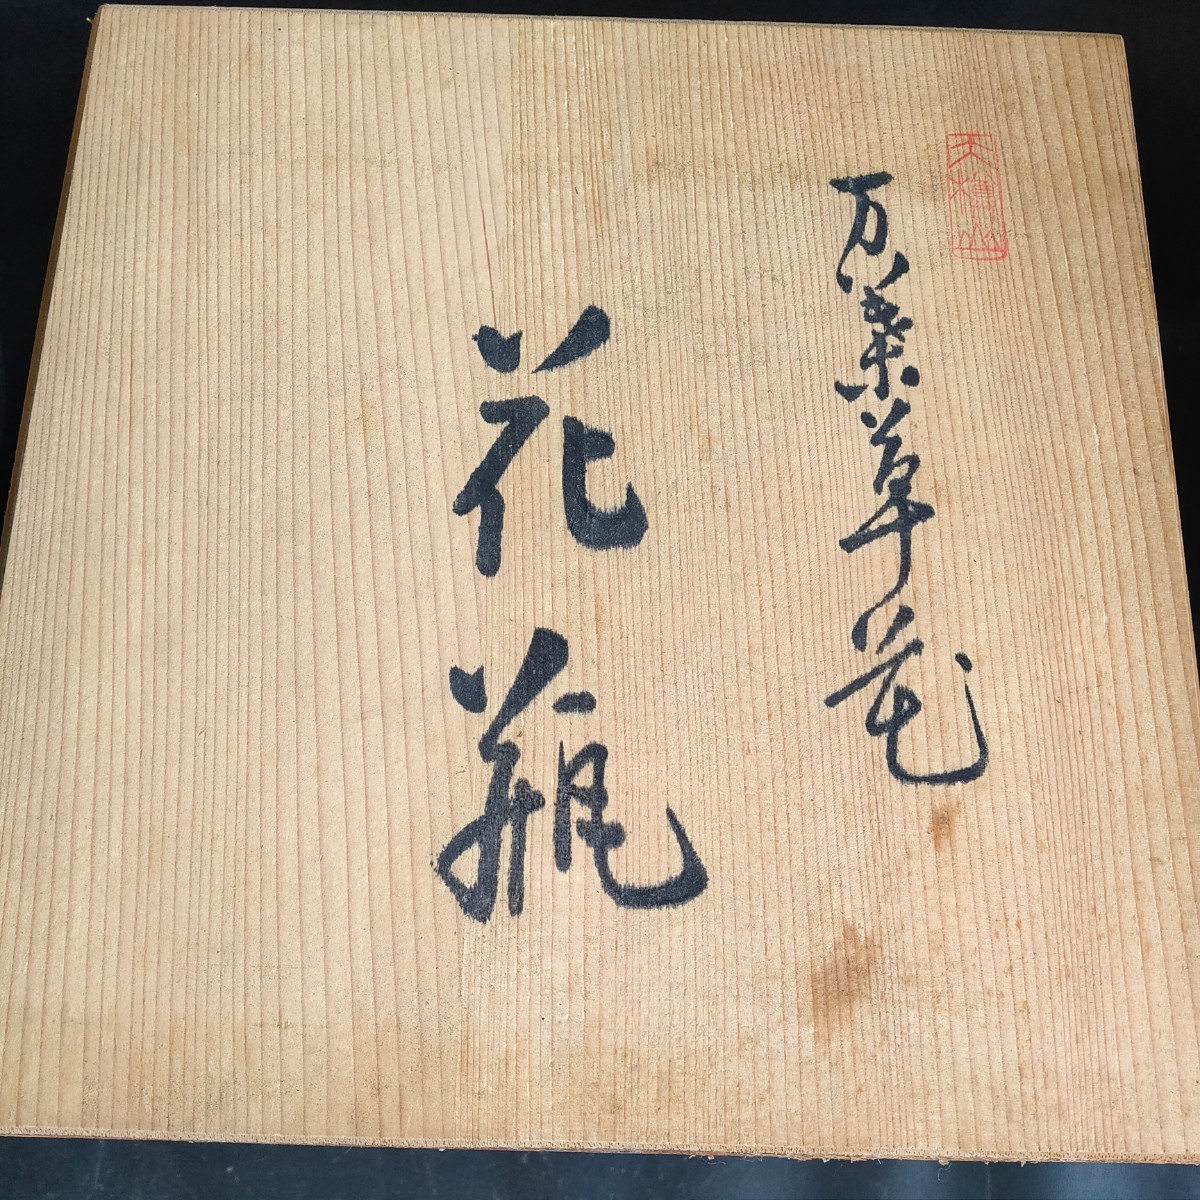 万葉草花
花瓶